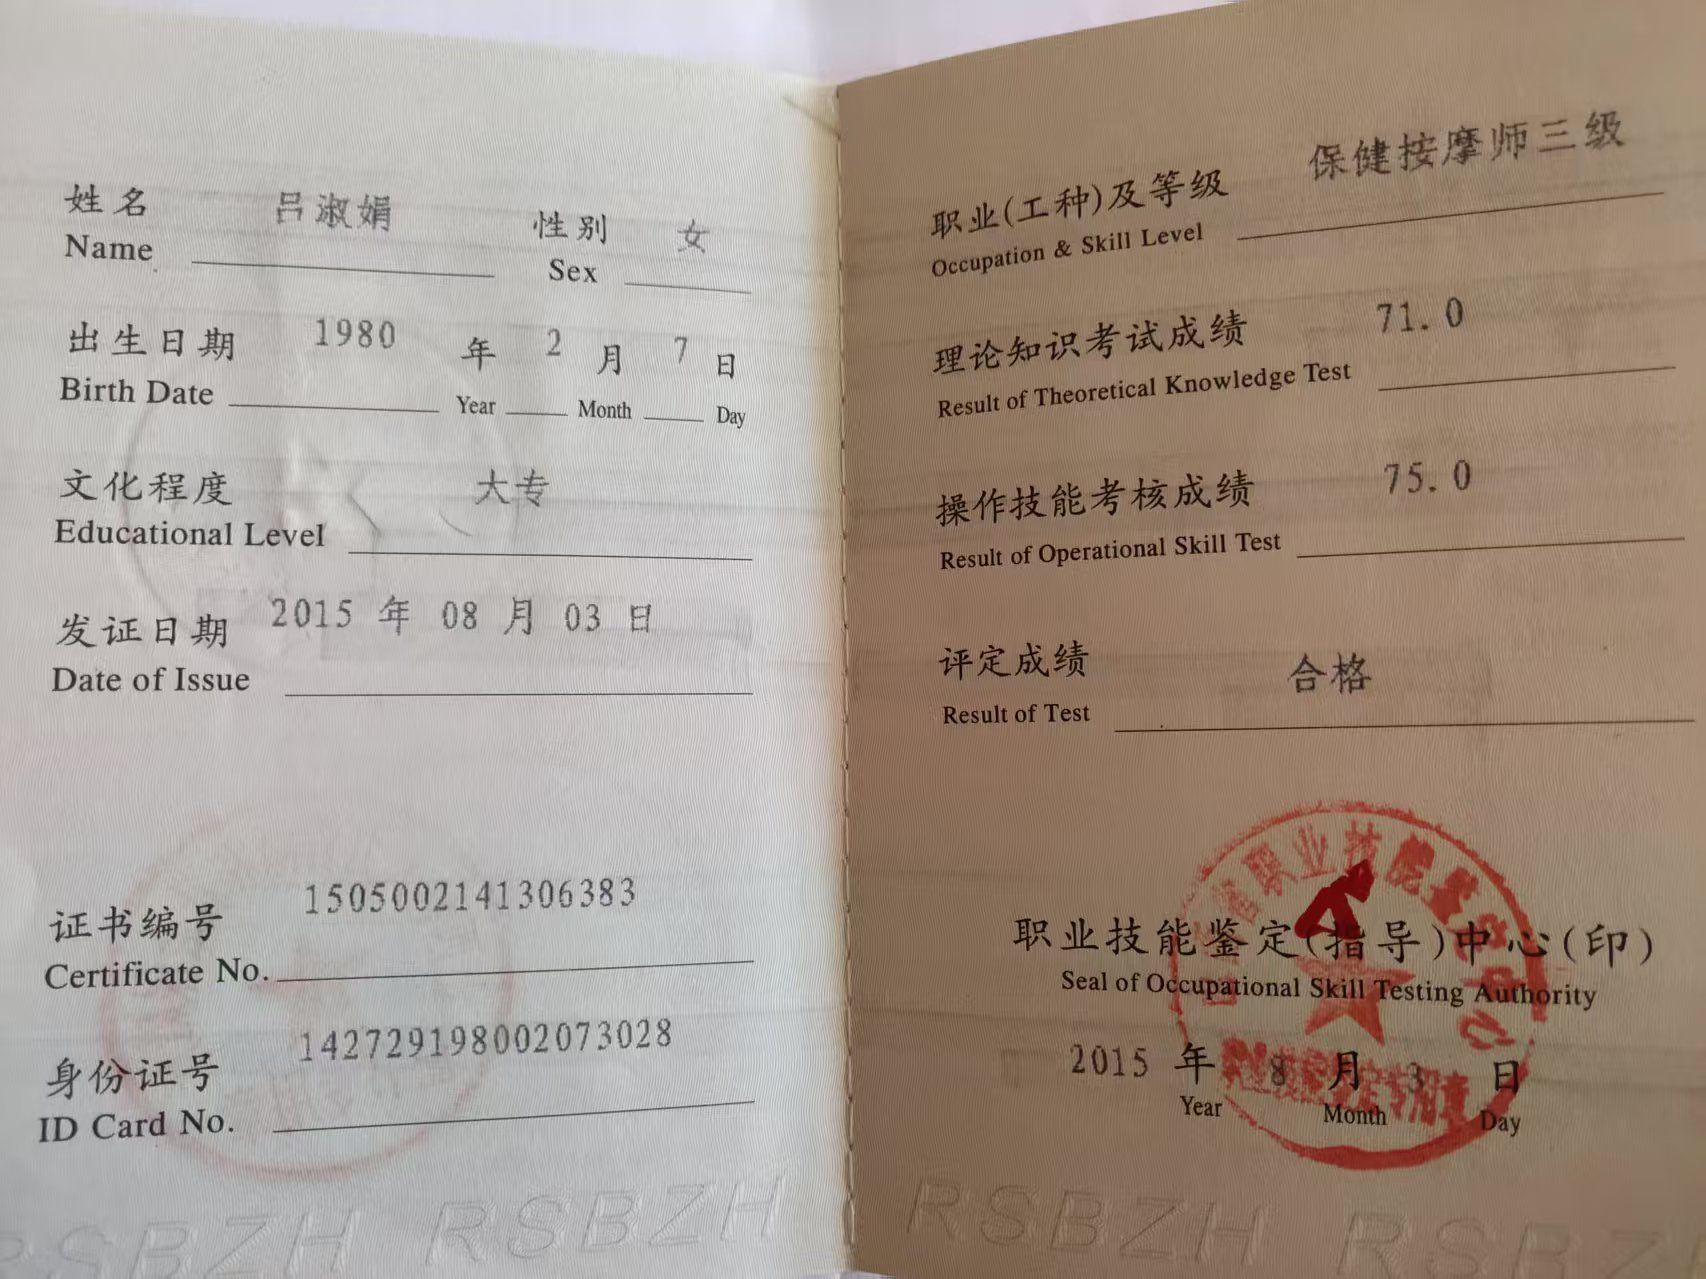 姓名 吕淑娟 性别 女
Name Sex
出生日期 1980 年 2 月 7 日
Birth Date Year Month Day
文化程度 大专
Educational Level
发证日期 2015 年 08 月 03 日
Date of Issue
证书编号 1505002141306383
Certificate No.
身份证号 142729198002073028
ID Card No.
职业(工种)及等级 保健按摩师三级
Occupation & Skill Level
理论知识考试成绩 71.0
Result of Theoretical Knowledge Test
操作技能考核成绩 75.0
Result of Operational Skill Test
评定成绩 合格
Result of Test
职业技能鉴定(指导)中心(印)
Seal of Occupational Skill Testing Authority
2015 年 8 月 3 日
Year Month Day
RSBZH RSBZH RSBZH RSBZ